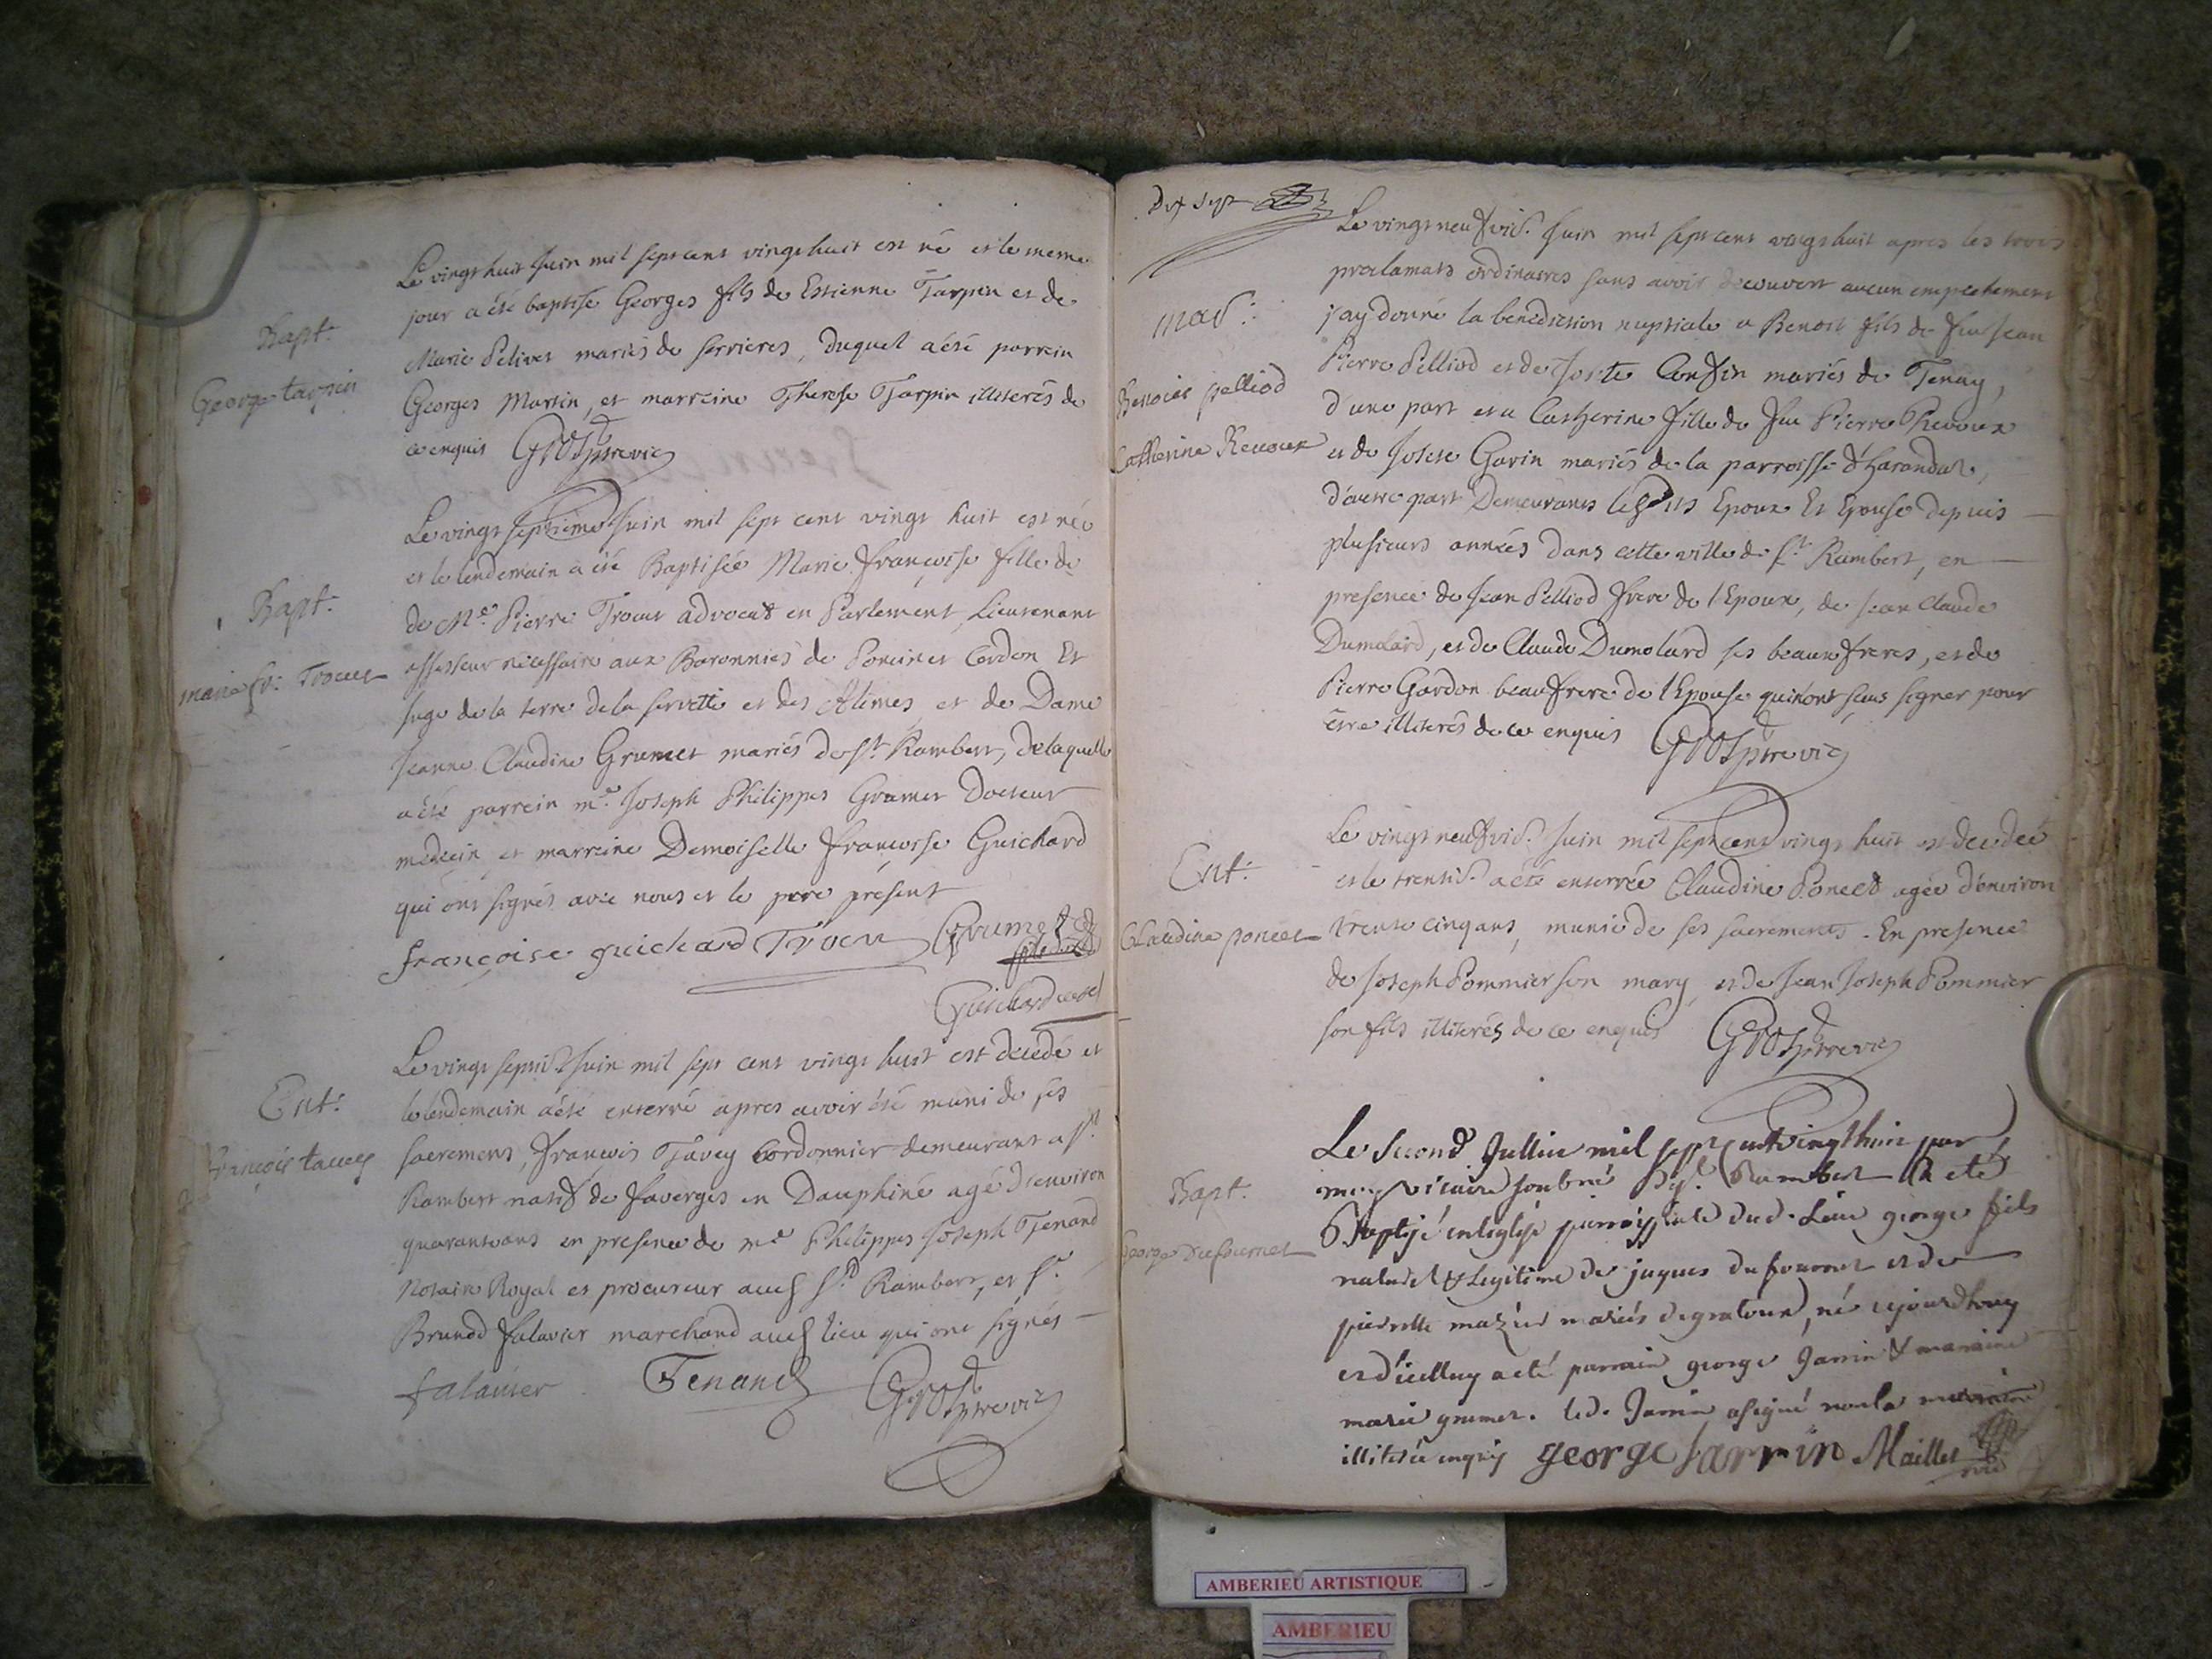 Bapt.
George tarpin
Le vingt huit Juin mil sept cent vingt huit est né et le meme
jour a été baptisé Georges fils de Estienne Tarpin et de
Marie Pelivet mariés de serrieres, duquel a été parrein
Georges Martin, et marreine Therese Tarpin illiterés de
ce enquis Grosptrevic
Bapt.
marie fr: Trocu
Le vingt septieme Juin mil sept cent vingt huit est née
et le lendemain a été Baptisée Marie françoise fille de
de Me. Pierre Trocu advocat en Parlement, Lieutenant
assesseur necessaire aux Baronnies de Poncin et Cerdon Et
juge de la terre de la servette et des Alimes, et de Dame
Jeanne Claudine Grumet mariés de St. Rambert, de laquelle
a été parrein me. Joseph Philippes Grumet Docteur
medecin et marreine Demoiselle françoise Guichard
qui ont signés avec nous et le pere présent
françoise guichard Trocu Grumet
Guichard
Ent:
françois tavey
Le vingt septie. Juin mil sept cent vingt huit est decedé et
le lendemain a été enterré apres avoir été muni de ses
sacremens, françois Tavey Cordonnier demeurant a St.
Rambert natif de faverges en Dauphiné agé d'environ
quarante ans en presence de me Philippes Joseph Tenand
Notaire Royal et procureur aud St. Rambert, et sr.
Brunod falavier marchand aud lieu qui ont signés
falavier Tenand Grosptrevic
Dix sept
mar:
Benoict pelliod
Catherine Revoux
Le vingt neufvie. Juin mil sept cent vingt huit apres les trois
proclamats ordinaires sans avoir decouvert aucun empechement
j'ay donné la benediction nuptiale a Benoit fils de feu Jean
Pierre Pelliod et de Joste Confin mariés de Tenay,
d'une part et a Catherine fille de feu Pierre Revoux
et de Josete Gavin mariés de la parroisse d'harandas,
d'autre part Demeurants lesdits Epoux Et Epouse depuis
plusieurs années dans cette ville de St. Rambert, en
presence de Jean Pelliod frere de l'Epoux, de Jean Claude
Dumolard, et de Claude Dumolard ses beaux freres, et de
Pierre Gardon beau frere de l'Epouse qui n'ont sceus signer pour
être illiterés de ce enquis Grosptrevic
Ent:
Claudine poncet
Le vingt neufvie. Juin mil sept cent vingt huit est decedée
et le trentie. a été enterrée Claudine Poncet agée d'environ
trente cinq ans, munie de ses sacrements. En presence
de Joseph Pommier son mary, et de Jean Joseph Pommier
son fils illiterés de ce enquis Grosptrevic
Bapt.
George Dufournet
Le second Jullie mil sept cent vingt huit par
moy vicaire soubné de St. Rambert a eté
Baptisé en leglise parroissiale dud. Lieu george fils
naturel & Legitime de jaques dufournet et de
pierrette mazuir mariés de gratoux, né cejourdhuy
et d'icelluy a eté parrain george Jarrin & marraine
marie grumet. led. Jarrin a signé non la marraine
illiterée enquis george Jarrin Maillet vic
AMBERIEU ARTISTIQUE
AMBERIEU